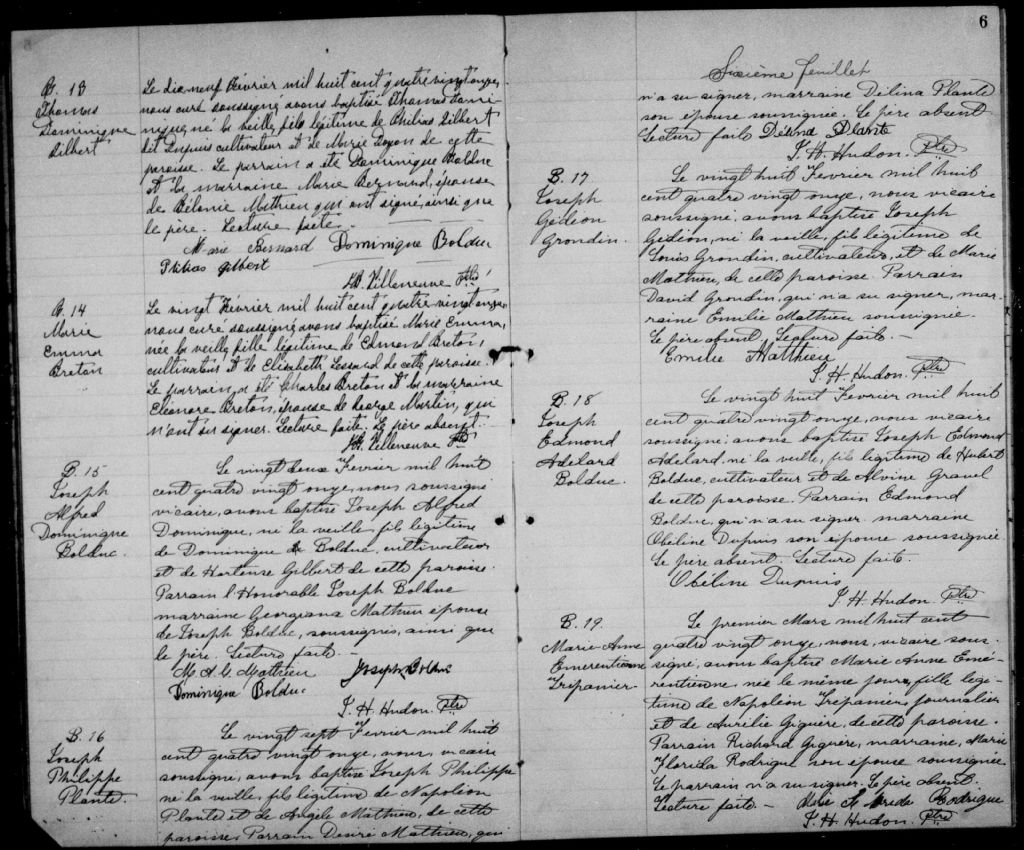 B. 13
Thomas
Dominique
Gilbert
Le dix neuf Février mil huit cent quatre vingt onze,
nous curé soussigné avons baptisé Thomas Domi-
nique, né la veille, fils légitime de Philias Gilbert
dit Dupuis cultivateur et de Marie Doyon de cette
paroisse. Le parrain a été Dominique Bolduc
et la marraine Marie Bernard, épouse
de Bélonie Mathieu qui ont signé, ainsi que
le père. Lecture faite.
Marie Bernard Dominique Bolduc
Philias Gilbert
Villeneuve Ptre
B. 14
Marie
Emma
Breton
Le vingt Février mil huit cent quatre vingt onze,
nous curé soussigné avons baptisé Marie Emma,
née la veille, fille légitime de Edmond Breton,
cultivateur et de Elizabeth Lessard de cette paroisse.
Le parrain a été Charles Breton et la marraine
Eléonore Breton, épouse de George Martin, qui
n'ont su signer. Lecture faite. Le père absent.
Villeneuve Ptre
B. 15
Joseph
Alfred
Dominique
Bolduc.
Le vingt deux Fevrier mil huit
cent quatre vingt onze, nous soussigné
vicaire, avons baptisé Joseph Alfred
Dominique, né la veille, fils légitime
de Dominique Bolduc, cultivateur
et de Hortense Gilbert de cette paroisse.
Parrain l'Honorable Joseph Bolduc
marraine Georgiana Mathieu épouse
de Joseph Bolduc, soussignés, ainsi que
le père. Lecture faite. —
M. A. G. Mathieu Joseph Bolduc
Dominique Bolduc
J. H. Hudon. Ptre
B. 16
Joseph
Philippe
Plante.
Le vingt sept Fevrier mil huit
cent quatre vingt onze, nous, vicaire
soussigné, avons baptisé Joseph Philippe
né la veille, fils légitime de Napoléon
Plante et de Angèle Mathieu, de cette
paroisse. Parrain Désiré Mathieu, qui
6
Sixième feuillet
n'a su signer, marraine Délina Plante
son épouse soussignée. Le père absent
Lecture faite Délina Plante
J. H. Hudon. Ptre
B. 17
Joseph
Gédéon
Grondin.
Le vingt huit Fevrier mil huit
cent quatre vingt onze, nous vicaire
soussigné, avons baptisé Joseph
Gédéon, né la veille, fils légitime de
Louis Grondin, cultivateur, et de Marie
Mathieu, de cette paroisse. Parrain
David Grondin, qui n'a su signer, mar-
raine Emilie Mathieu soussignée.
Le père absent, Lecture faite. —
Emilie Matthieu
J. H. Hudon. Ptre
B. 18
Joseph
Edmond
Adélard
Bolduc.
Le vingt huit Fevrier mil huit
cent quatre vingt onze, nous vicaire
soussigné, avons baptisé Joseph Edmond
Adélard, né la veille, fils légitime de Hubert
Bolduc, cultivateur et de Alvine Gravel
de cette paroisse. Parrain Edmond
Bolduc, qui n'a su signer. marraine
Obéline Dupuis son épouse soussignée
Le père absent. Lecture faite.
Obéline Dupuis
J. H. Hudon. Ptre
B. 19.
Marie-Anne
Emerentienne
Trépanier
Le premier Mars mil huit cent
quatre vingt onze, nous, vicaire sous-
signé, avons baptisé Marie Anne Emé-
rentienne née le même jour, fille légi-
time de Napoléon Trépanier, journalier
et de Aurélie Giguère, de cette paroisse.
Parrain Richard Giguère, marraine, Marie
Florida Rodrigue son épouse soussignée
Le parrain n'a su signer. Le père absent.
Lecture faite — Rodrigue
J. H. Hudon. Ptre